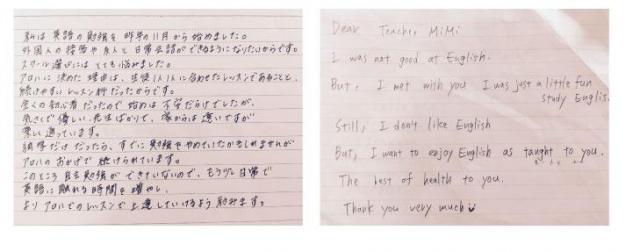 私は英語の勉強を昨年の11月から始めました。
外国人の接客や友人と日常会話ができるようになりたいからです。
スクール選びにはとても悩みました。
アロハに決めた理由は、生徒1人1人に合わせたレッスンであることと、
続けやすいレッスン料だったからです。
全くの初心者だったので始めは不安だらけでしたが、
気さくで優しい先生ばかりで、家からは遠いですが
楽しく通っています。
独学だけだったら、すでに勉強をやめていたかもしれませんが
アロハのおかげで続けられています。
このところ自主勉強ができていないので、もう少し日常で
英語に触れる時間を増やし、
よりアロハでのレッスンで上達していけるよう励みます。
Dear Teacher MiMi
I was not good at English.
But, I met with you I was just a little fun
study English
Still, I don't like English
But, I want to enjoy English as taught to you.
The best of health to you.
Thank you very much